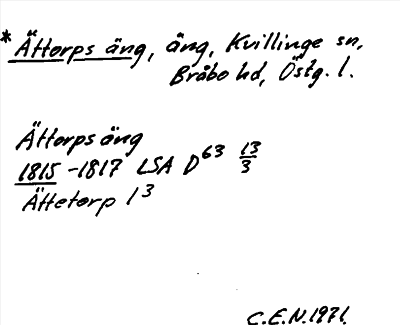 * Ättorps äng, äng, Kvillinge sn,
Bråbo hd, Östg. l.
Ättorps äng
1815-1817 LSA D63 13/3
Ättetorp 1 3
C.E.N. 1971.